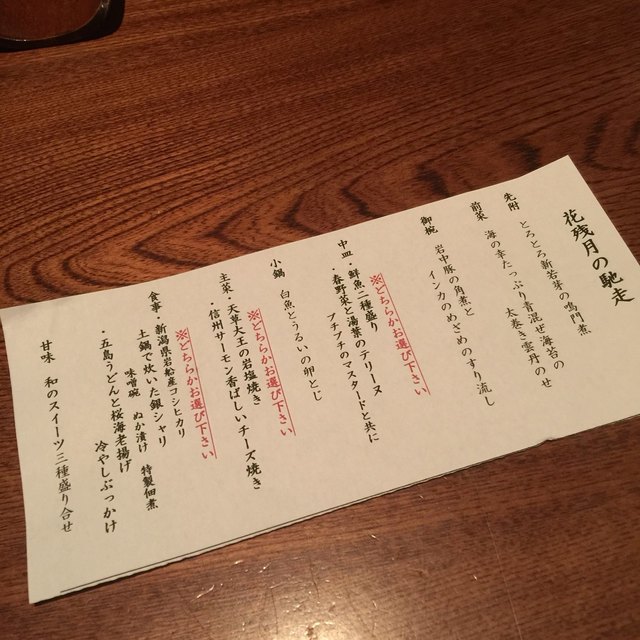 花残月の馳走
先附 とろとろ新若芽の鳴門煮
前菜 海の幸たっぷり青混ぜ海苔の
太巻き雲丹のせ
御椀 岩中豚の角煮と
インカのめざめのすり流し
※どちらかお選び下さい
中皿・鮮魚二種盛り
・春野菜と湯葉のテリーヌ
プチプチのマスタードと共に
小鍋 白魚とうるいの卵とじ
※どちらかお選び下さい
主菜・天茸大王の岩塩焼き
・信州サーモン香ばしいチーズ焼き
※どちらかお選び下さい
食事・新潟県岩船産コシヒカリ
土鍋で炊いた銀シャリ
味噌椀 ぬか漬け 特製佃煮
・五島うどんと桜海老揚げ
冷やしぶっかけ
甘味 和のスイーツ三種盛り合せ